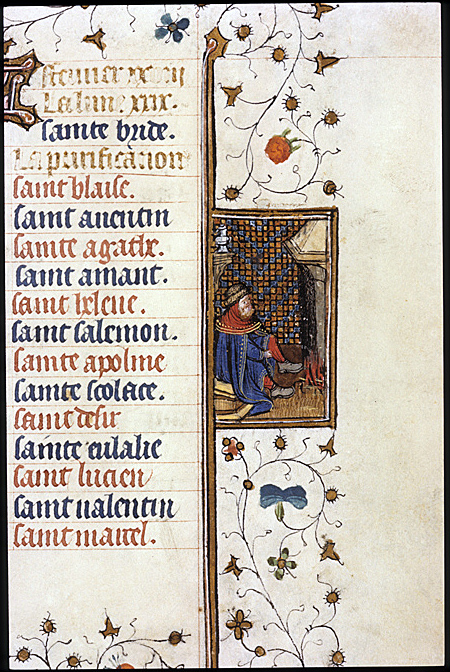 Feurier xxviii
La lune xxix.
sainte bride.
La purification
saint blaise.
saint auentin
sainte agathe.
saint amant.
saint heleine.
saint salemon.
sainte apoline
sainte scolace.
saint desir
sainte eulalie
saint lucien
saint ualentin
saint marcel.